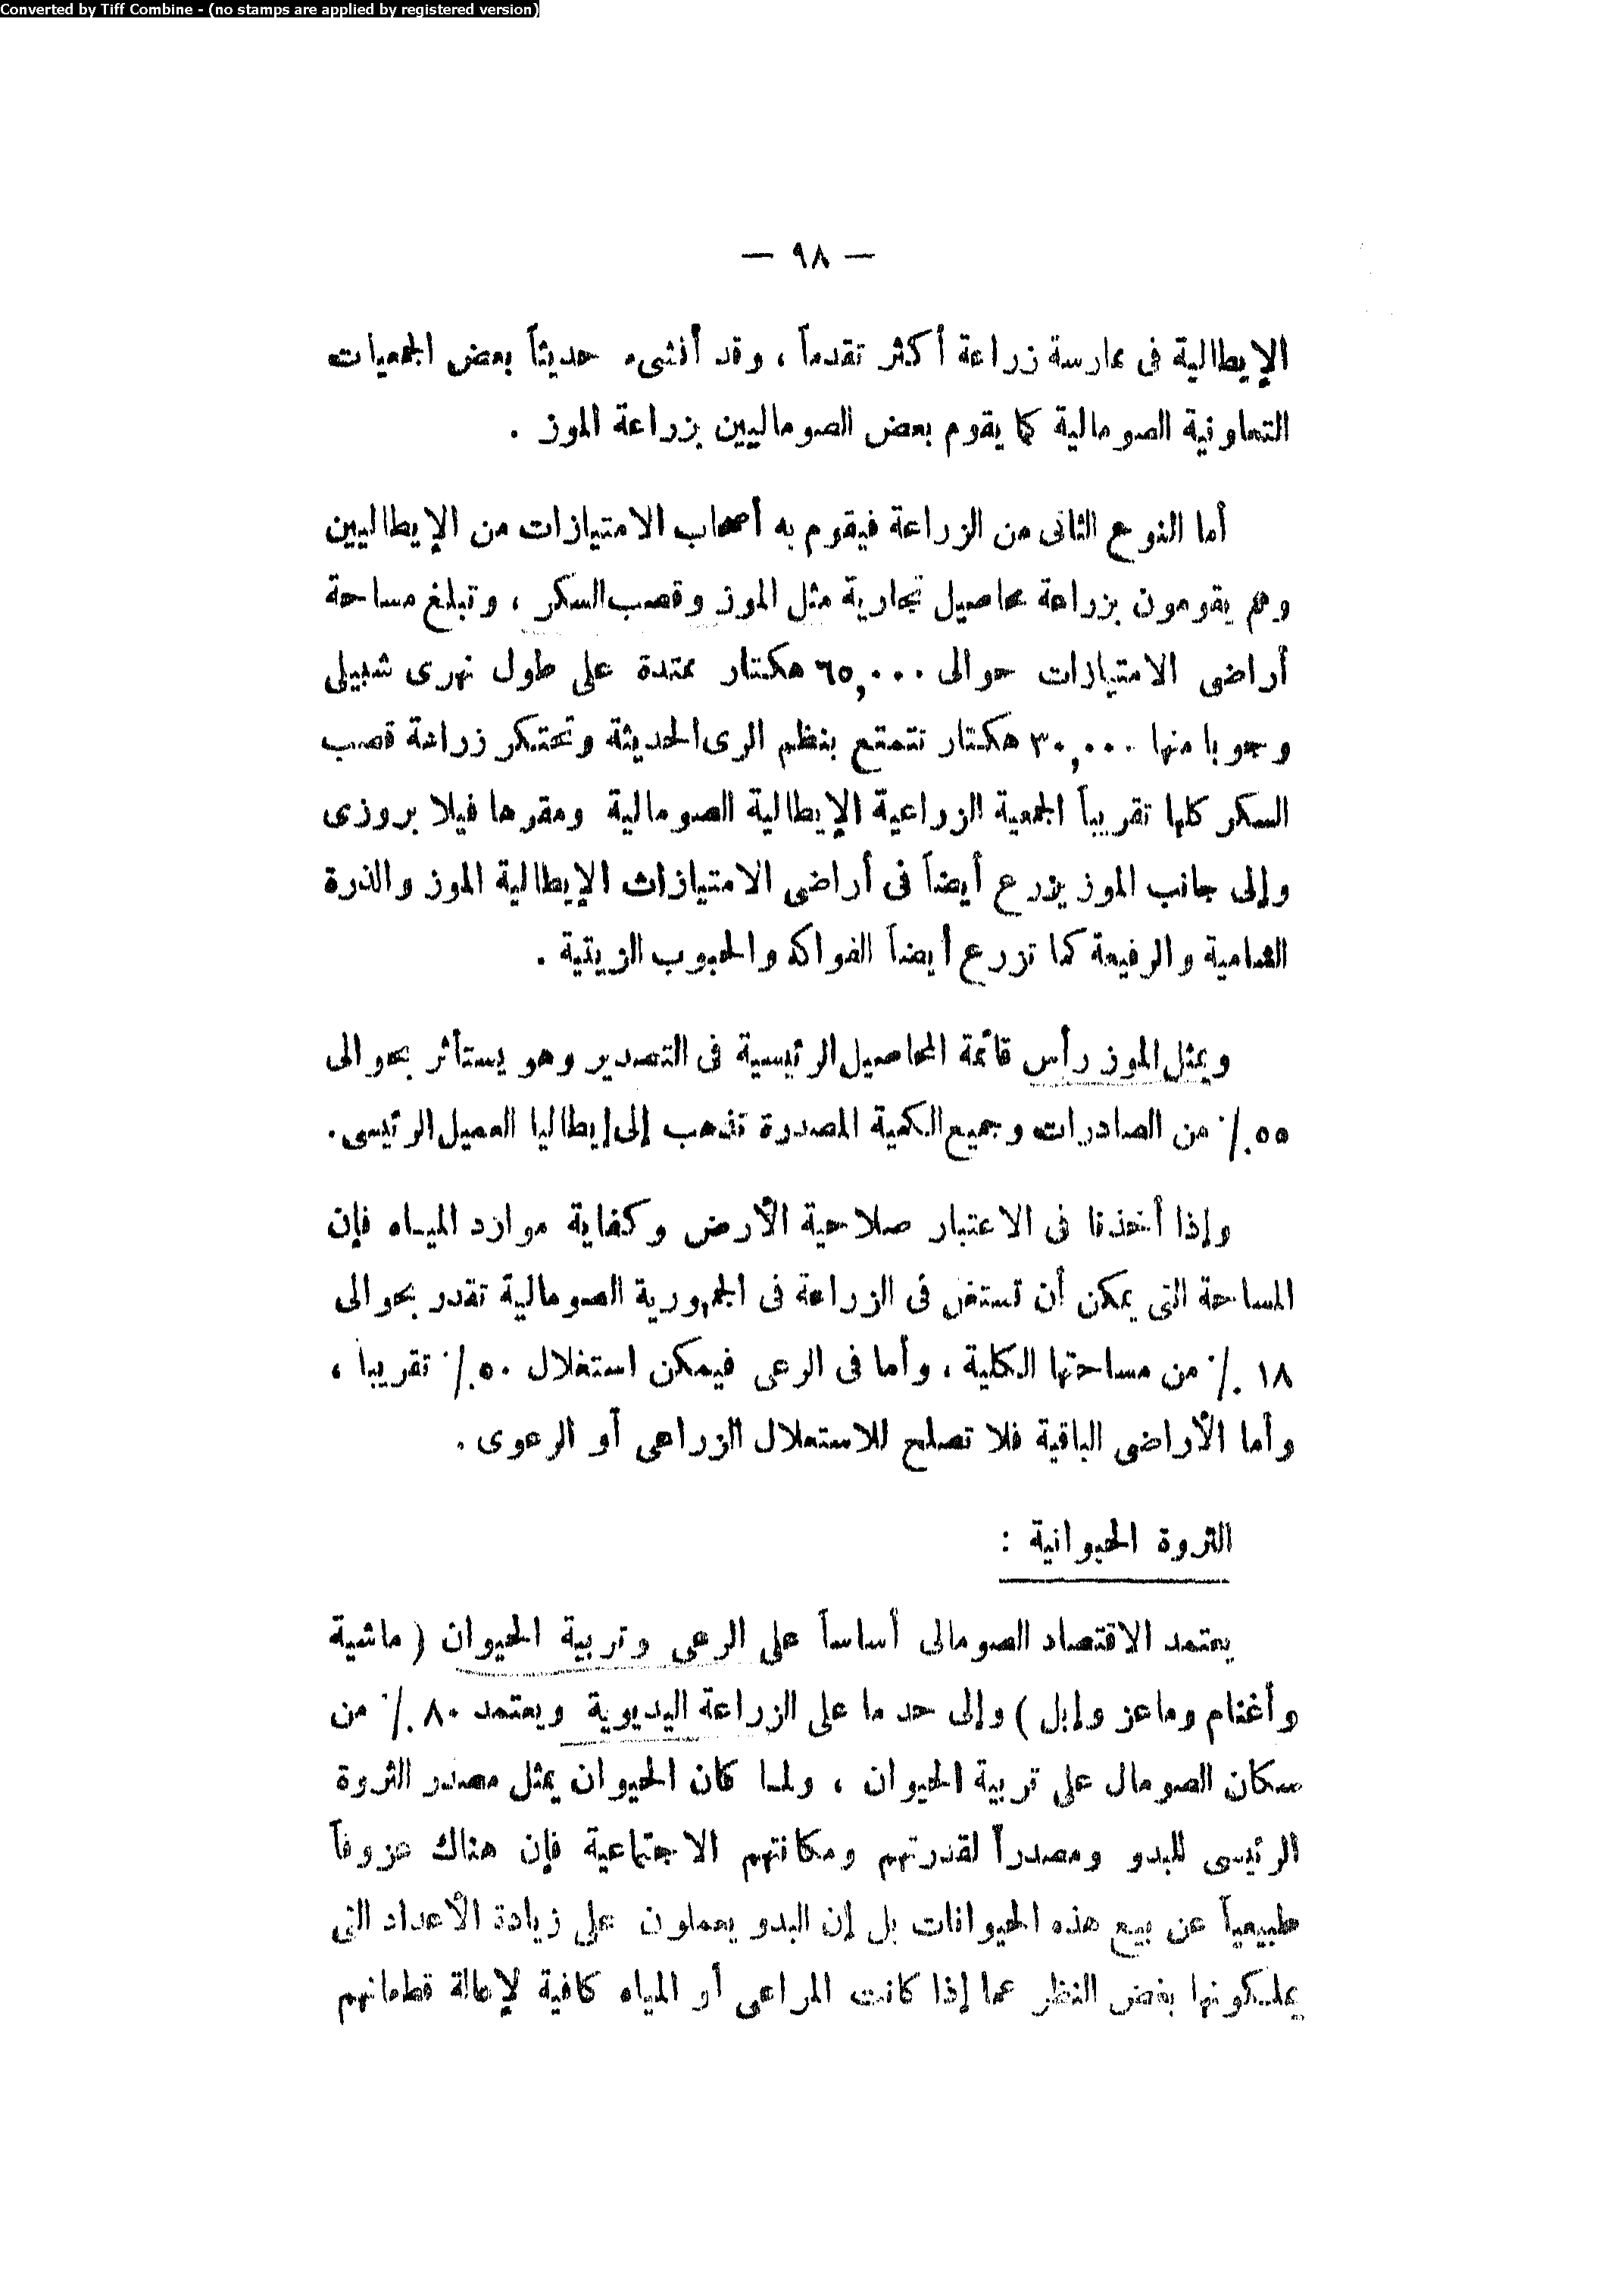 Converted by Tiff Combine - (no stamps are applied by registered version)
— ٩٨ —
الإيطالية فى ممارسة زراعة أكثر تقدماً ، وقد أنشىء حديثاً بعض الجمعيات
التعاونية الصومالية كما يقوم بعض الصوماليين بزراعة الموز .
أما النوع الثانى من الزراعة فيقوم به أصحاب الامتيازات من الإيطاليين
وهم يقومون بزراعة محاصيل تجارية مثل الموز وقصب السكر ، وتبلغ مساحة
أراضى الامتيازات حوالى ٦٥,٠٠٠ هكتار ممتدة على طول نهرى شبيلى
وجوبا منها ٣٠,٠٠٠ هكتار تتمتع بنظم الرى الحديثة وتحتكر زراعة قصب
السكر كلها تقريباً الجمعية الزراعية الإيطالية الصومالية ومقرها فيلا بروزى
وإلى جانب الموز يزرع أيضاً فى أراضى الامتيازات الإيطالية الموز والذرة
الشامية والرفيعة كما تزرع أيضاً الفواكه والحبوب الزيتية .
ويمثل الموز رأس قائمة المحاصيل الرئيسية فى التصدير وهو يستأثر بحوالى
٥٥٪ من الصادرات وجميع الكمية المصدرة تذهب إلى إيطاليا العميل الرئيسى .
وإذا أخذنا فى الاعتبار صلاحية الأرض وكفاية موارد المياه فإن
المساحة التى يمكن أن تستغل فى الزراعة فى الجمهورية الصومالية تقدر بحوالى
١٨ ٪ من مساحتها الكلية ، وأما فى الرعى فيمكن استغلال ٥٠٪ تقريباً ،
وأما الأراضى الباقية فلا تصلح للاستغلال الزراعى أو الرعوى .
الثروة الحيوانية :
يعتمد الاقتصاد الصومالى أساساً على الرعى وتربية الحيوان ( ماشية
وأغنام وماعز وإبل ) وإلى حد ما على الزراعة اليديوية ويعتمد ٨٠٪ من
سكان الصومال على تربية الحيوان ، ولما كان الحيوان يمثل مصدر الثروة
الرئيسى للبدو ومصدراً لقدرتهم ومكانتهم الاجتماعية فإن هناك عزوفاً
طبيعياً عن بيع هذه الحيوانات بل إن البدو يعملون على زيادة الأعداد التى
يملكونها بغض النظر عما إذا كانت المراعى أو المياه كافية لإعالة قطعانهم